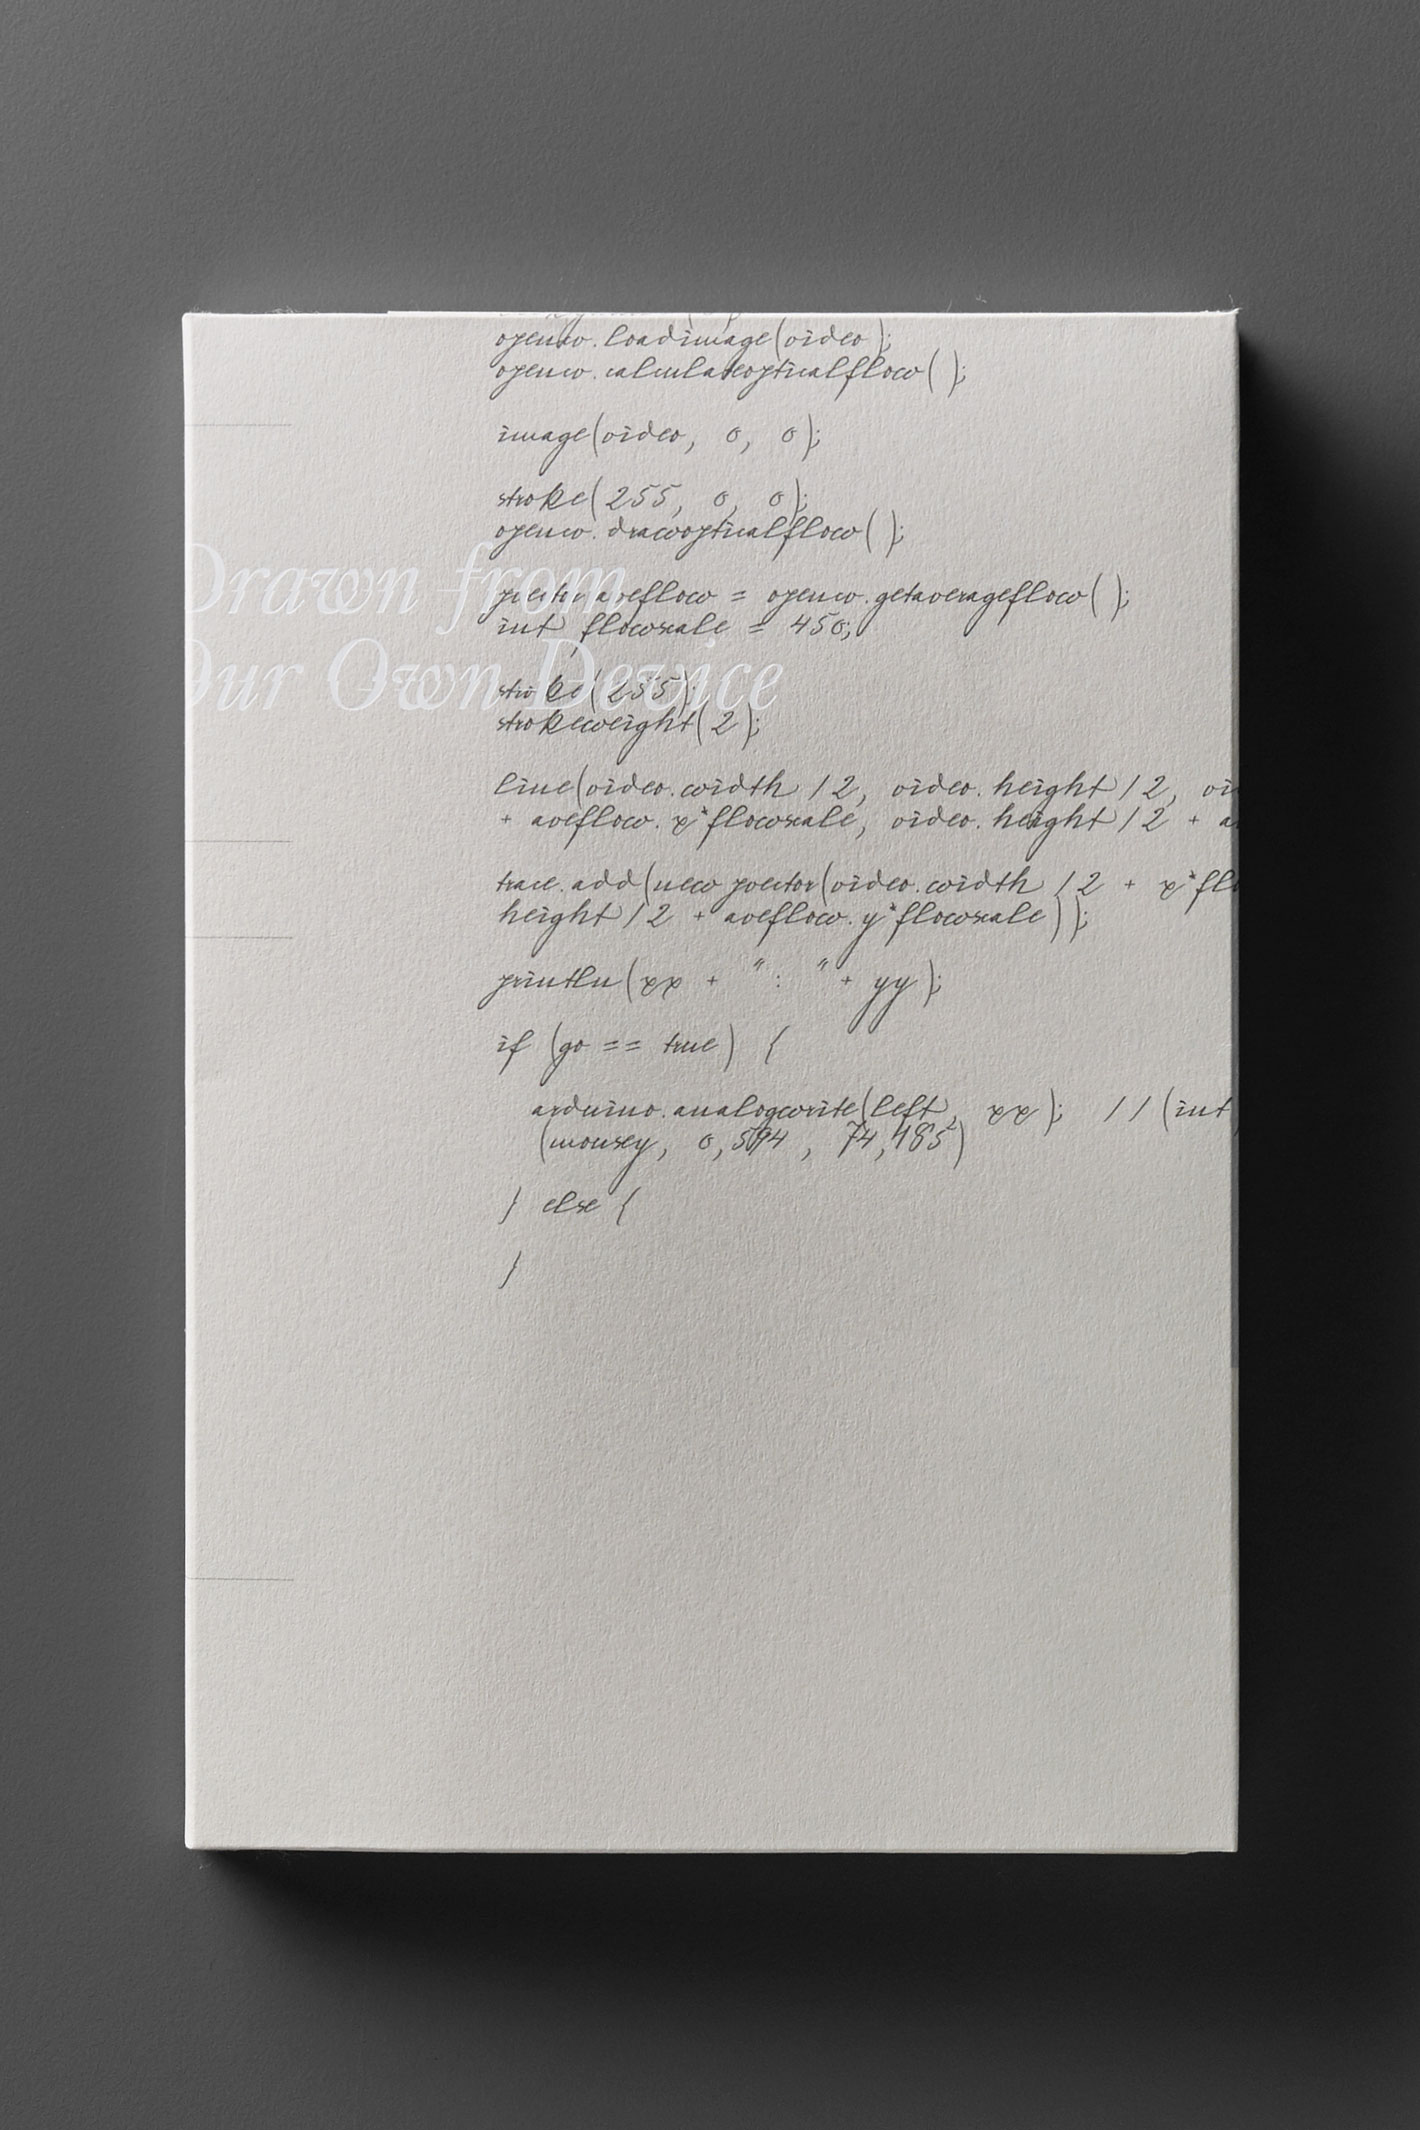 opencv.loadimage(video);
opencv.calculateopticalflow( );
image(video, 0, 0);
stroke(255, 0, 0);
opencv.drawopticalflow( );
Drawn from
pvector aveflow = opencv.getaverageflow( );
int flowscale = 450;
Our Own Device
stroke(255);
strokeweight(2);
line(video.width / 2, video. height / 2, vi
+ aveflow. x*flowscale, video. height / 2 + a
trace.add(new pvector(video.width / 2 + x*flo
height / 2 + aveflow.y*flowscale));
println(xx + " : " + yy);
if (go == true) {
arduino.analogwrite(left, xx); // (int
(mousey, 0,594 , 74,485²)
} else {
}